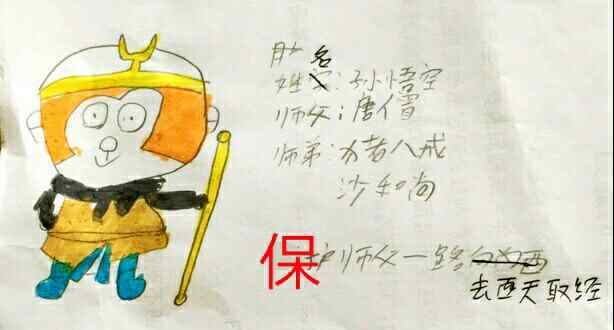 姓名：孙悟空
师父：唐僧
师弟：猪八戒
沙和尚
保护师父一路
去西天取经